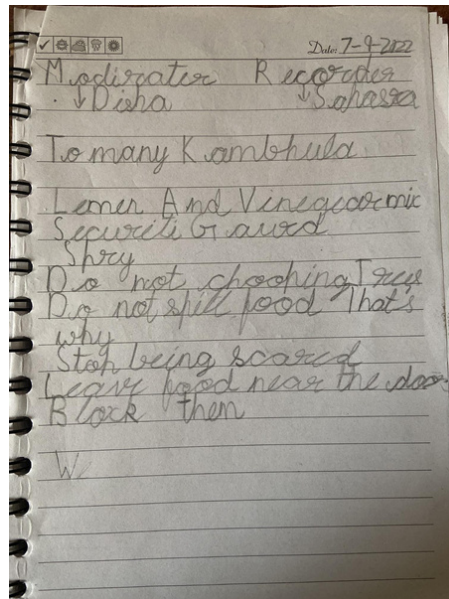 Date: 7-9-2022
Modirater Recorder
↓Disha ↓Sahasra
To many Kambhula
Lemen And Vinegearmic
Securiti Gaurd
Spry
Do not chooping Trees
Do not spill food That's
why
Stop being scared
Leave food near the door
Block them
W